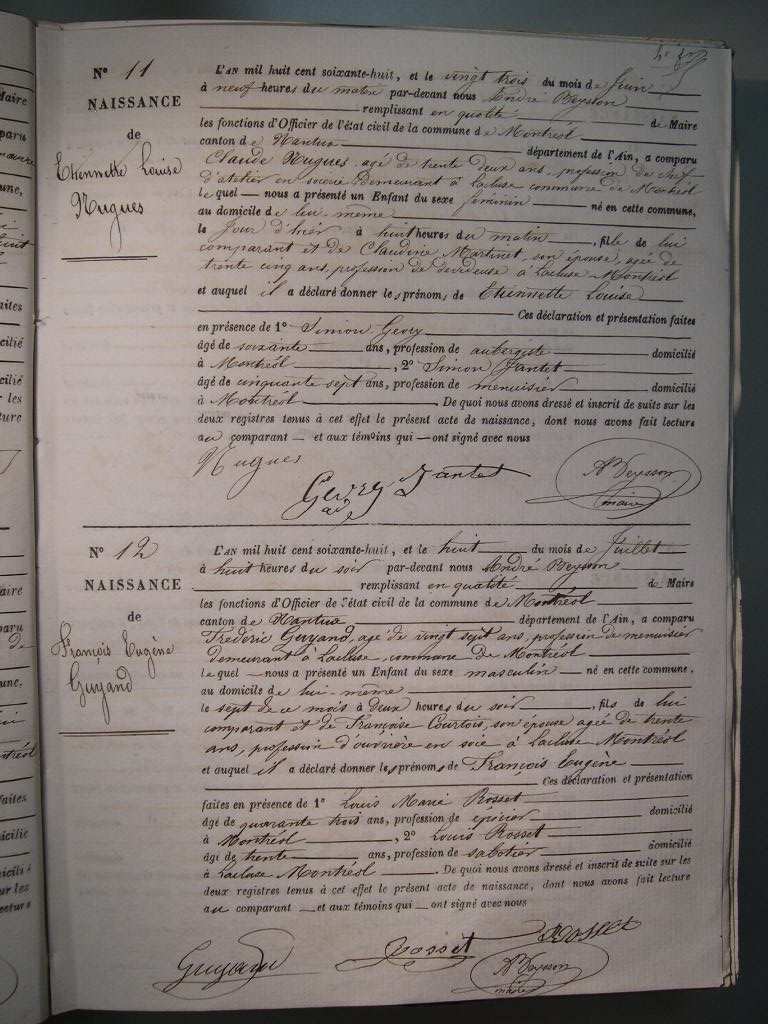 N° 11
NAISSANCE
de
Etiennette Louise
Nugues
L'AN mil huit cent soixante-huit, et le vingt trois du mois de Juin
à neuf heures du matin par-devant nous André Beysson
remplissant en qualité de Maire
les fonctions d'Officier de l'état civil de la commune de Montréol
canton de Nantua département de l'Ain, a comparu
Claude Nugues, agé de trente deux ans, profession de chef
d'atelier en soierie Demeurant à Lacluse commune de Montréol
lequel nous a présenté un Enfant du sexe feminin né en cette commune,
au domicile de lui même
le Jour d'hier à huit heures du matin, fille de lui
comparant et de Claudine Martinet, son épouse, agée de
trente cinq ans, profession de devideuse à Lacluse Montréol
et auquel il a déclaré donner les prénoms de Etiennette Louise
Ces déclaration et présentation faites
en présence de 1° Simon Gevry
âgé de soixante ans, profession de aubergiste domicilié
à Montréol, 2° Simon Jantet
âgé de cinquante sept ans, profession de menuisier domicilié
à Montréol. De quoi nous avons dressé et inscrit de suite sur les
deux registres tenus à cet effet le présent acte de naissance, dont nous avons fait lecture
au comparant et aux témoins qui ont signé avec nous
Nugues
Gevry Jantet
ABeysson
maire
N° 12
NAISSANCE
de
François Eugène
Guyand
L'AN mil huit cent soixante-huit, et le huit du mois de Juillet
à huit heures du soir par-devant nous André Beysson
remplissant en qualité de Maire
les fonctions d'Officier de l'état civil de la commune de Montréol
canton de Nantua département de l'Ain, a comparu
Frédéric Guyand, agé de vingt sept ans, profession de menuisier
demeurant à Lacluse, commune de Montréol
lequel nous a présenté un Enfant du sexe masculin né en cette commune,
au domicile de lui-même
le sept de ce mois à Deux heures du soir, fils de lui
comparant et de Françoise Courtois, son épouse agée de trente
ans, profession d'ouvrière en soie à Lacluse Montréol
et auquel il a déclaré donner les prénoms de François Eugène
Ces déclaration et présentation
faites en présence de 1° Louis Marie Rosset
âgé de quarante trois ans, profession de épicier domicilié
à Montréol, 2° Louis Rosset
âgé de trente ans, profession de sabotier domicilié
à Lacluse Montréol. De quoi nous avons dressé et inscrit de suite sur les
deux registres tenus à cet effet le présent acte de naissance, dont nous avons fait lecture
au comparant et aux témoins qui ont signé avec nous
Guyand Rosset Rosset
ABeysson
maire